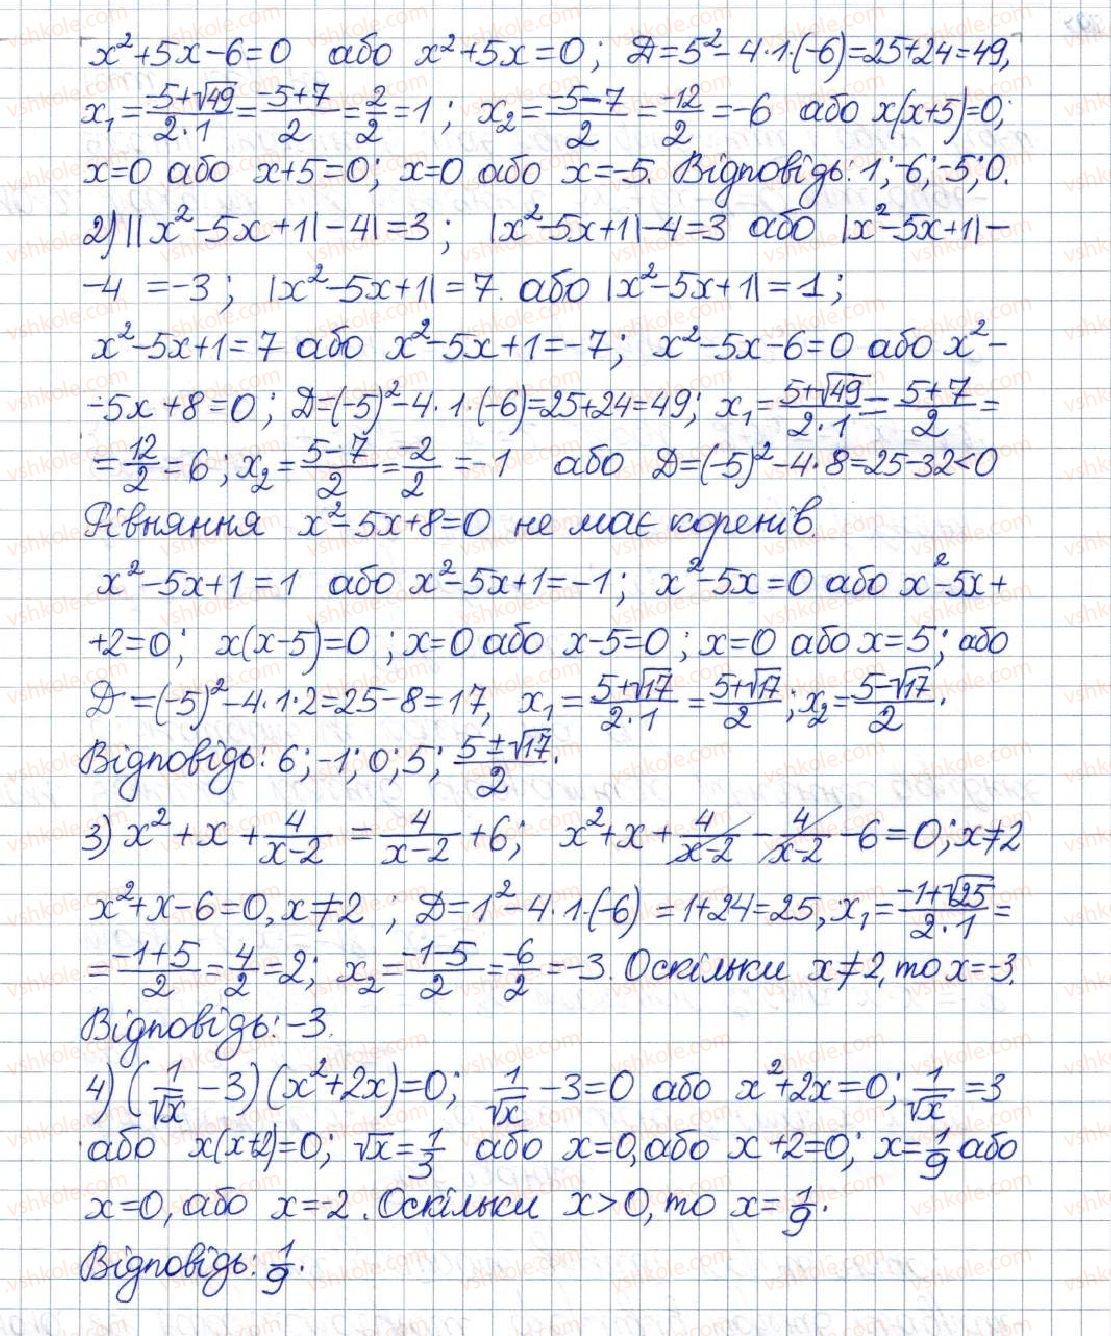 x²+5x-6=0 або x²+5x=0; Д=5²-4·1·(-6)=25+24=49,
x₁=(-5+√49)/(2·1)=(-5+7)/2=2/2=1; x₂=(-5-7)/2=-12/2=-6 або x(x+5)=0;
x=0 або x+5=0; x=0 або x=-5. Відповідь: 1;-6;-5;0.
2) ||x²-5x+1|-4|=3; |x²-5x+1|-4=3 або |x²-5x+1|-
-4=-3; |x²-5x+1|=7. або |x²-5x+1|=1;
x²-5x+1=7 або x²-5x+1=-7; x²-5x-6=0 або x²-
-5x+8=0; Д=(-5)²-4·1·(-6)=25+24=49; x₁=(5+√49)/(2·1)=(5+7)/2=
=12/2=6; x₂=(5-7)/2=-2/2=-1 або Д=(-5)²-4·8=25-32<0
Рівняння x²-5x+8=0 не має коренів.
x²-5x+1=1 або x²-5x+1=-1; x²-5x=0 або x²-5x+
+2=0; x(x-5)=0; x=0 або x-5=0; x=0 або x=5; або
Д=(-5)²-4·1·2=25-8=17, x₁=(5+√17)/(2·1)=(5+√17)/2; x₂=(5-√17)/2.
Відповідь: 6;-1;0;5; (5±√17)/2.
3) x²+x+4/(x-2)=4/(x-2)+6; x²+x+4/(x-2)-4/(x-2)-6=0; x≠2
x²+x-6=0, x≠2; Д=1²-4·1·(-6)=1+24=25, x₁=(-1+√25)/(2·1)=
=(-1+5)/2=4/2=2; x₂=(-1-5)/2=-6/2=-3. Оскільки x≠2, то x=-3.
Відповідь: -3.
4) (1/√x-3)(x²+2x)=0; 1/√x-3=0 або x²+2x=0; 1/√x=3
або x(x+2)=0; √x=1/3 або x=0, або x+2=0; x=1/9 або
x=0, або x=-2. Оскільки x>0, то x=1/9.
Відповідь: 1/9.